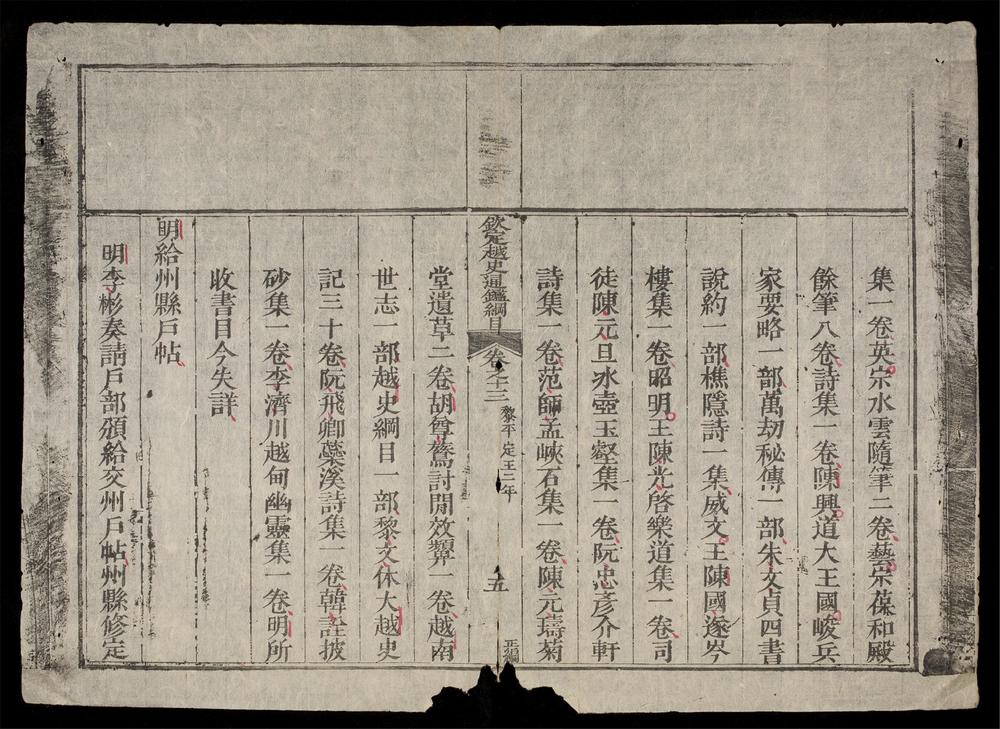 集一卷英宗水雲隨筆二卷藝宗葆和殿
餘筆八卷詩集一卷陳興道大王國峻兵
家要略一部萬劫秘傳一部朱文貞四書
說約一部樵隱詩一集威文王陳國遂岑
樓集一卷昭明王陳光啓樂道集一卷司
徒陳元旦氷壺玉壑集一卷阮忠彥介軒
詩集一卷范師孟峽石集一卷陳元璹菊
欽定越史通鑑綱目 卷之十三 黎平定王二年 五 正編
堂遺草二卷胡尊鷟討閒效顰一卷越南
世志一部越史綱目一部黎文休大越史
記三十卷阮飛卿蘂溪詩集一卷韓詮披
砂集一卷李濟川越甸幽靈集一卷明所
收書目今失詳
明給州縣戶帖
明李彬奏請戶部頒給交州戶帖州縣修定